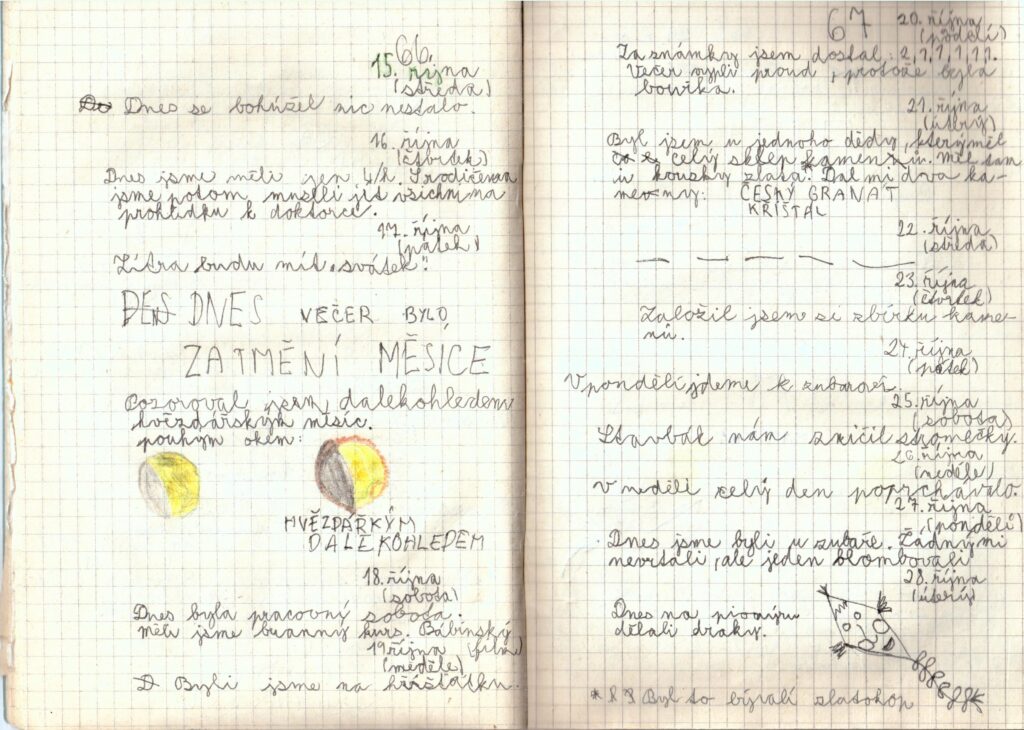 66.
15. října
(středa)
Dnes se bohužel nic nestalo.
16. října
(čtvrtek)
Dnes jsme měli jen 4 h. S rodičema
jsme potom museli jít všichni na
prohlídku k doktorce.
17. října
(pátek)
Zítra budu mít „svátek"
DEN DNES VEČER BYLO
ZATMĚNÍ MĚSICE
Pozoroval jsem dalekohledem
hvězdářským měsíc.
pouhým okem:
HVĚZDÁŘKÝM
DALEKOHLEDEM
18. října
(sobota)
Dnes byla pracovný sobota.
měli jsme branný kurs. Bábinský
(film)
19 října
(neděle)
Byli jsme na hřištátku.
67
20. října
(pondělí)
Za známky jsem dostal: 2,1,1,1,1,1.
Večer vypli proud, protože byla
bouřka.
21. října
(úterý)
Byl jsem u jednoho dědy, který měl
celý sklep kamenů. Měl tam
i kousky zlata.* Dal mi dva ka-
meny: ČESKÝ GRANÁT
KŘIŠTÁL
22. října
(středa)
— — — — —
23. října
(čtvrtek)
Založil jsem si sbírku kame-
nů.
24. října
(pátek)
V pondělí jdeme k zubaroví.
25. října
(sobota)
Stavbař nám zničil stromečky.
26. října
(neděle)
V neděli celý den poprchávalo.
27. října
(pondělí)
Dnes jsme byli u zubaře. Žádný mi
nevrtali, ale jeden blombovali
28. října
(úterý)
Dnes na pionýru
dělali draky.
* Byl to bývalí zlatokop